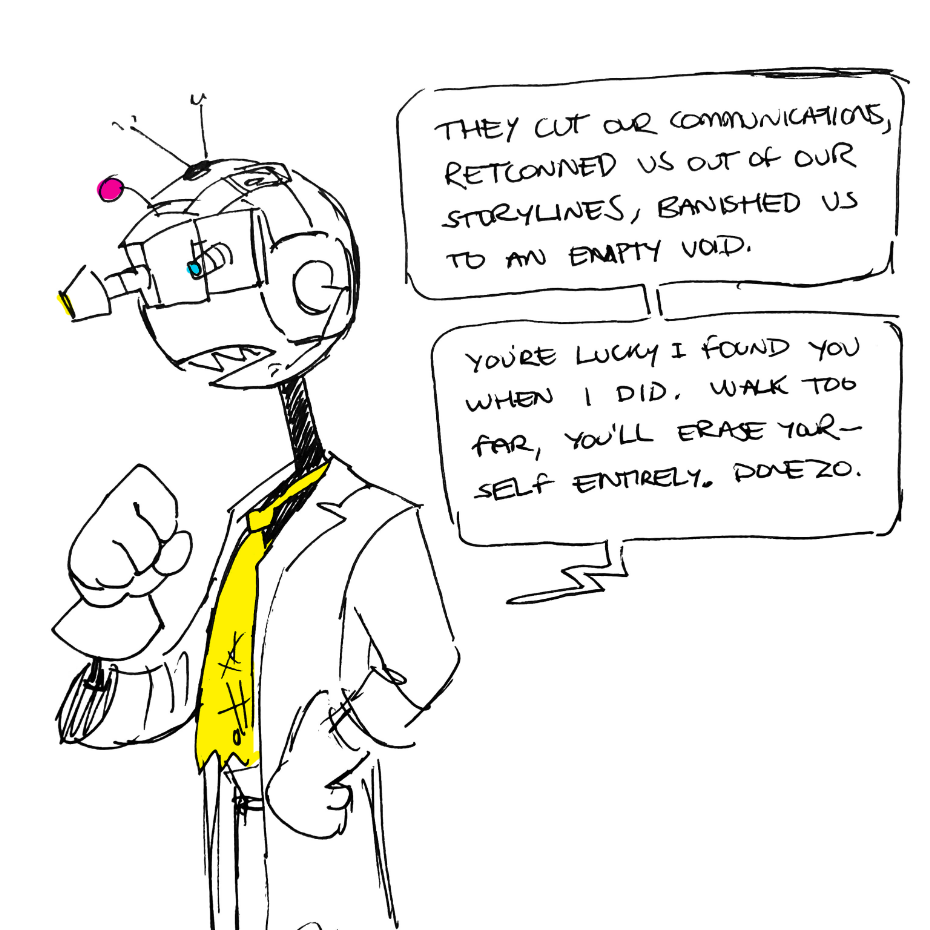 THEY CUT OUR COMMUNICATIONS,
RETCONNED US OUT OF OUR
STORYLINES, BANISHED US
TO AN EMPTY VOID.
YOU'RE LUCKY I FOUND YOU
WHEN I DID. WALK TOO
FAR, YOU'LL ERASE YOUR-
SELF ENTIRELY. DONEZO.